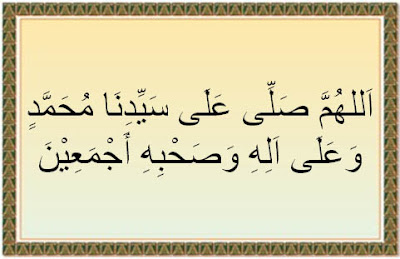 اَللهُمَّ صَلِّى عَلَى سَيِّدِنَا مُحَمَّدٍ
وَعَلَى اَلِهِ وَصَحْبِهِ أَجْمَعِيْنَ